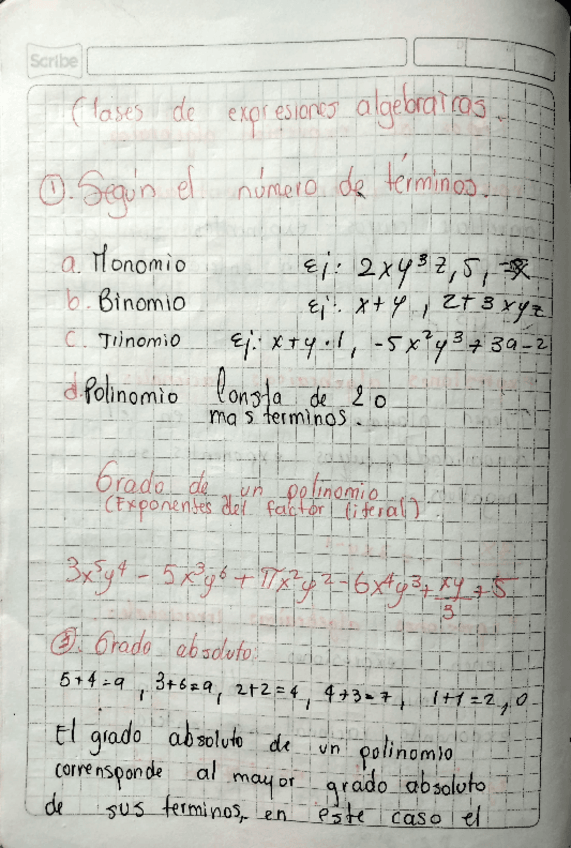 Scribe
Clases de expresiones algebraicas.
①. Según el número de términos.
a. Monomio Ej: 2xy³z, 5, -x
b. Binomio Ej: x+y, 2+3xyz
c. Trinomio Ej: x+y·1, -5x²y³+3a-2
d. Polinomio Consta de 2 o
mas terminos.
Grado de un polinomio
(Exponentes del factor literal)
3x⁵y⁴ - 5x³y⁶ + πx²y² - 6x⁴y³ + xy/3 + 5
Grado absoluto:
5+4=9, 3+6=9, 2+2=4, 4+3=7, 1+1=2, 0
El grado absoluto de un polinomio
corrensponde al mayor grado absoluto
de sus terminos, en este caso el